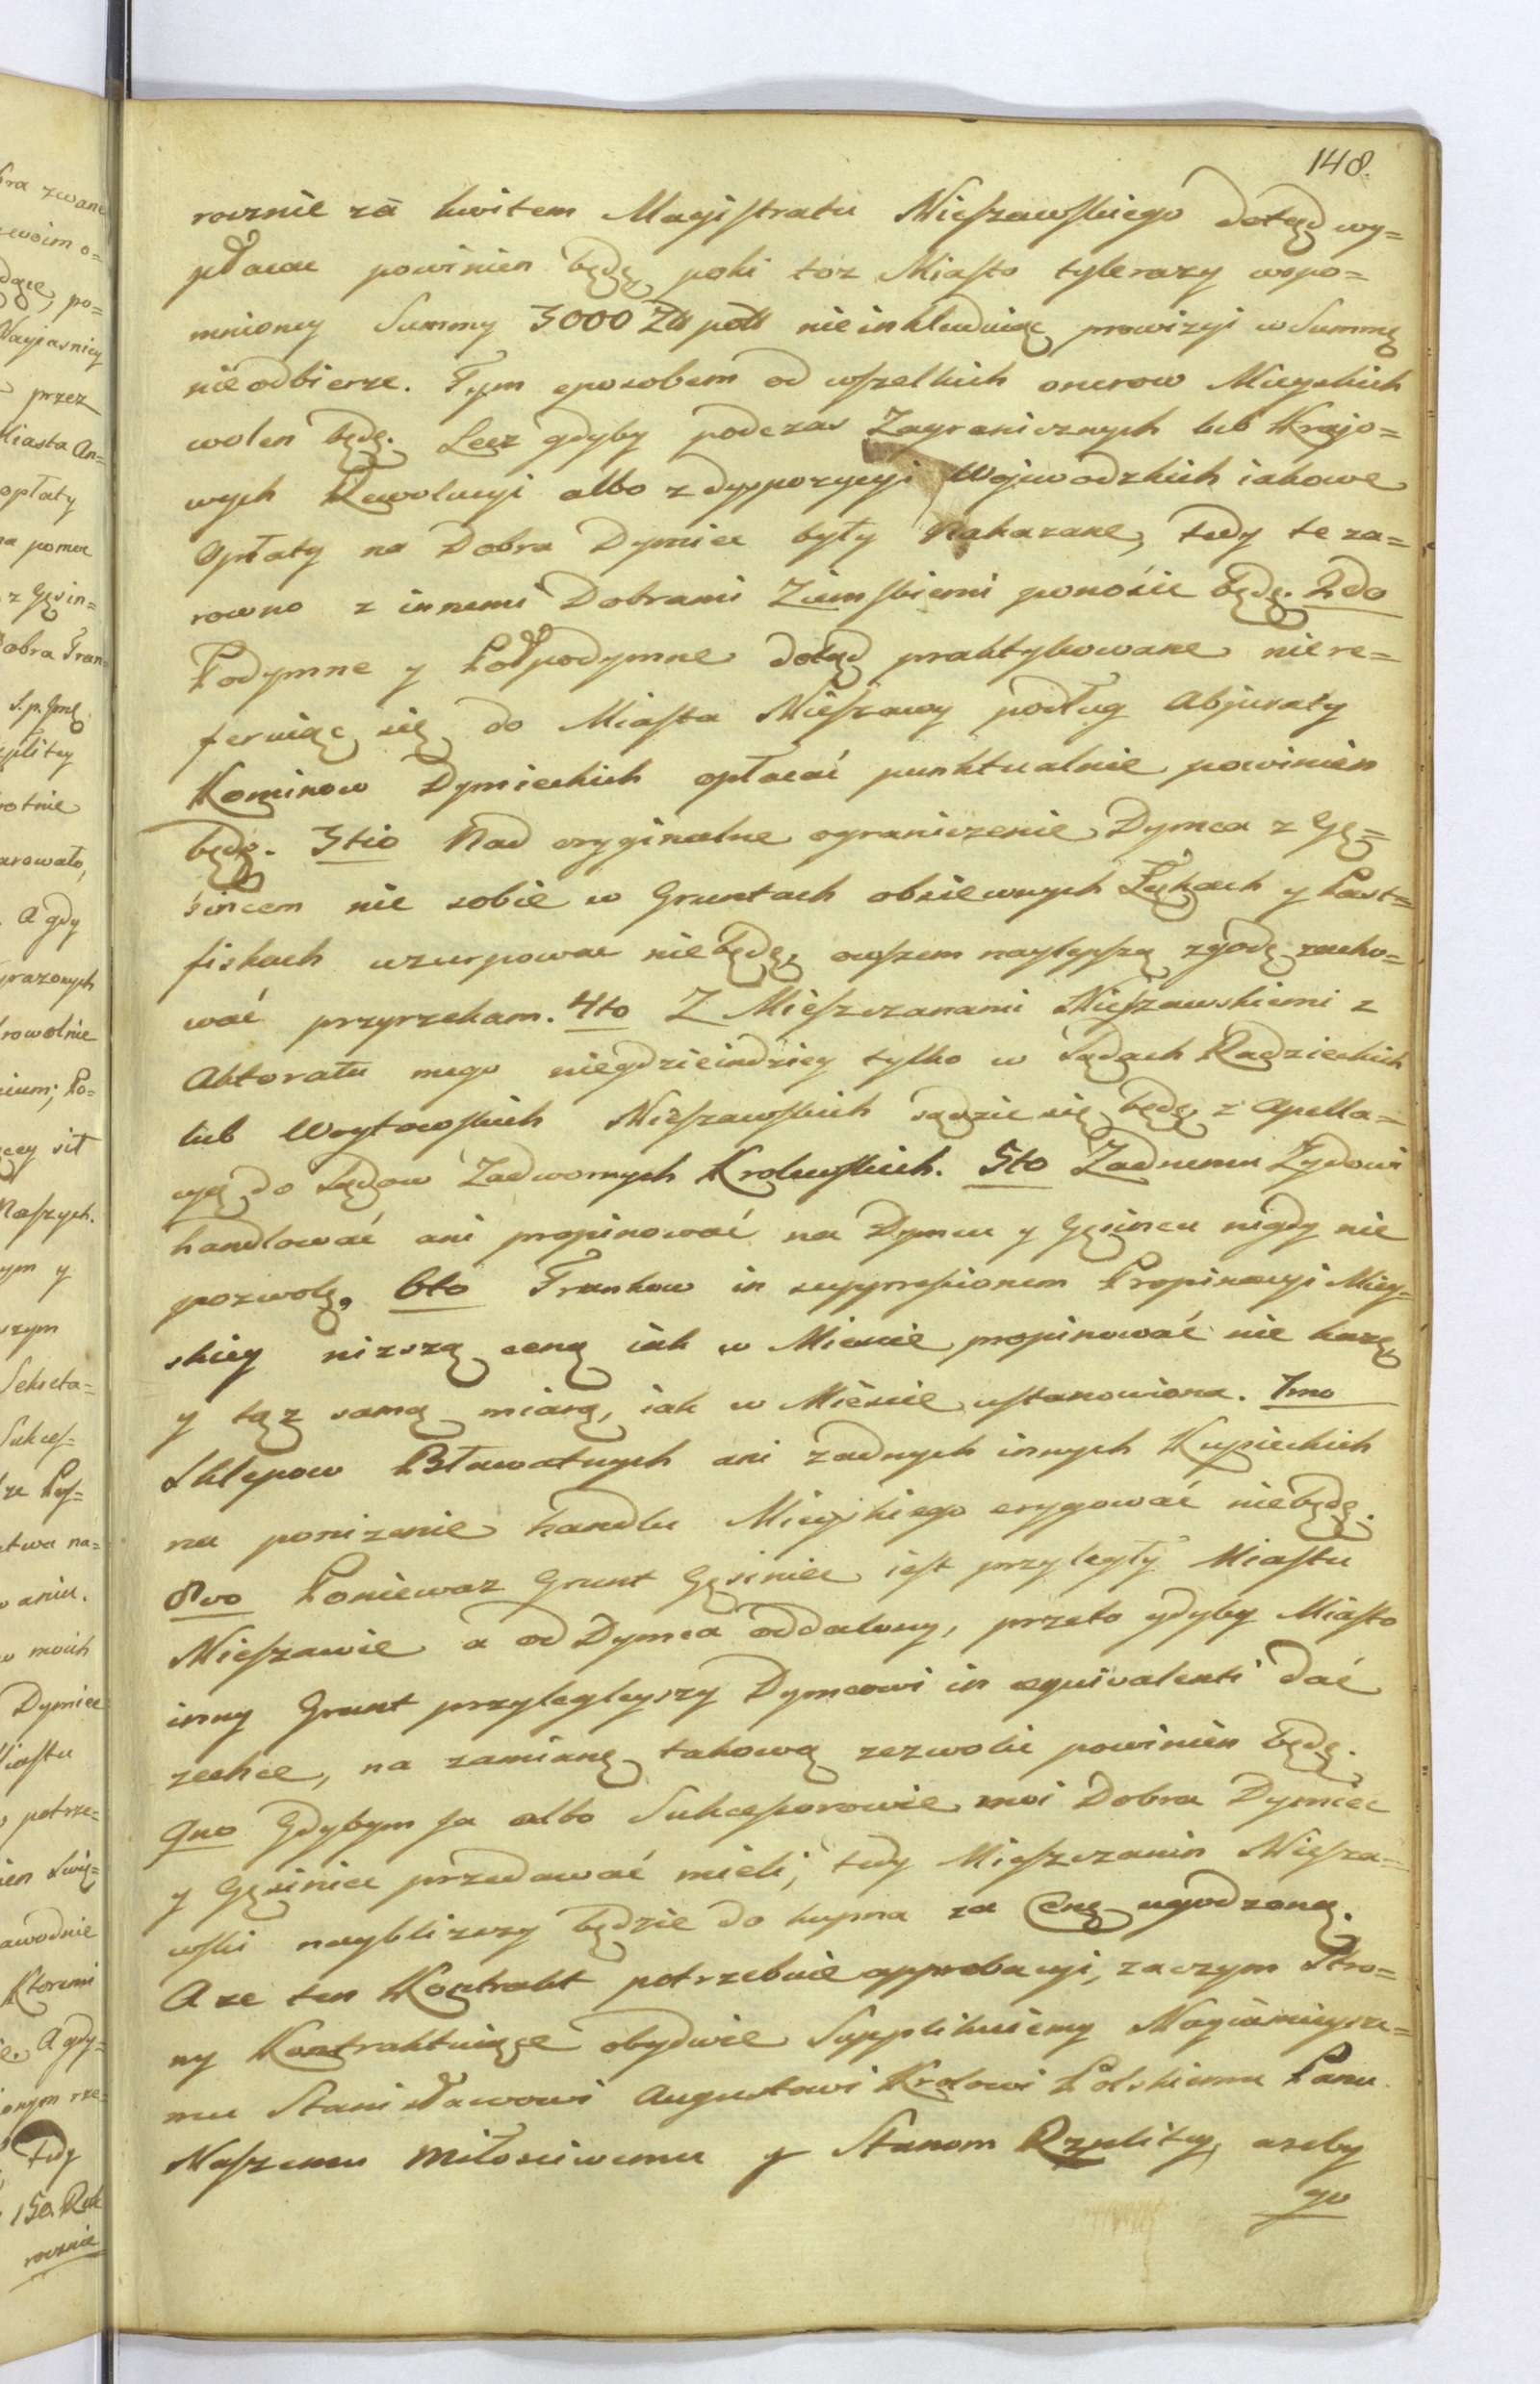 148.
rocznie za kwitem Magistratu Nieszawskiego dotąd wy=
płacac powinien będę, poki toz Miasto tylerazy wspo=
mnioney Summy 3000 Zł: poll nieinkluduiąc prowizyi w Summę
nieodbierze. Tym sposobem od wszelkich onerow Mieyskich
wolen będę. Lecz gdyby podczas Zagranicznych lub Krajo=
wych Rewolucyi albo z dyspozycyi Wojewodzkich iakowe
Opłaty na Dobra Dymiec były Nakazane, tedy te za=
rowno z innemi Dobrami Ziemskiemi ponośic będę. 2do
Podymne y Połpodymne dotąd praktykowane nie re=
feruiąc się do Miasta Nieszawy podług Abjuraty
Kominow Dymieckich opłacać punktualnie powinien
będę. 3tio Nad oryginalne ograniczenie Dymca z Gę=
śincem nie sobie w Gruntach obsiewnych Łąkach y Past=
fiskach uzurpowac niebędę, owszem naylepszą zgodę zacho=
wać przyrzekam. 4to Z Mieszczanami Nieszawskiemi z
Aktoratu mego niegdzieindziey tylko w Sądach Radzieckich
lub Woytowskich Nieszawskich sądzic się będę z Apella=
cyą do Sądow Zadwornych Krolewskich. 5to Zadnemu Zydowi
handlować ani propinować na Dymcu y Gęsincu nigdy nie
pozwolę. 6to Trunkow in suppressionem Propinacyi Miey=
skiey niższą ceną iak w Miescie propinować nie każę,
y tąz samą miarą, iak w Mieście ustanowiona. 7mo
Sklepow Bławatnych ani zadnych innych Kupieckich
na poniżenie handlu Mieyskiego erygować niebędę.
8vo Poniewaz Grunt Gęsiniec iest przyległy Miastu
Nieszawie a od Dymca oddalony, przeto gdyby Miasto
inny Grunt przylegleyszy Dymcowi in equivalenti dać
zechce, na zamianę takową zezwolic powinien będę.
9no Gdybym Ja albo Sukcessorowie moi Dobra Dymiec
y Gęsiniec przedawać mieli, tedy Mieszczanin Niesza=
wski naybliższy będzie do kupna za Cenę ugodzoną.
A ze ten Kontrakt potrzebuie approbacyi, zaczym Stro=
ny Kontraktuiące obydwie Supplikuiemy Nayiasnieysze=
mu Stanisławowi Augustowi Krolowi Polskiemu Panu
Naszemu Miłosciwemu y Stanom Rzplitey, azeby
go